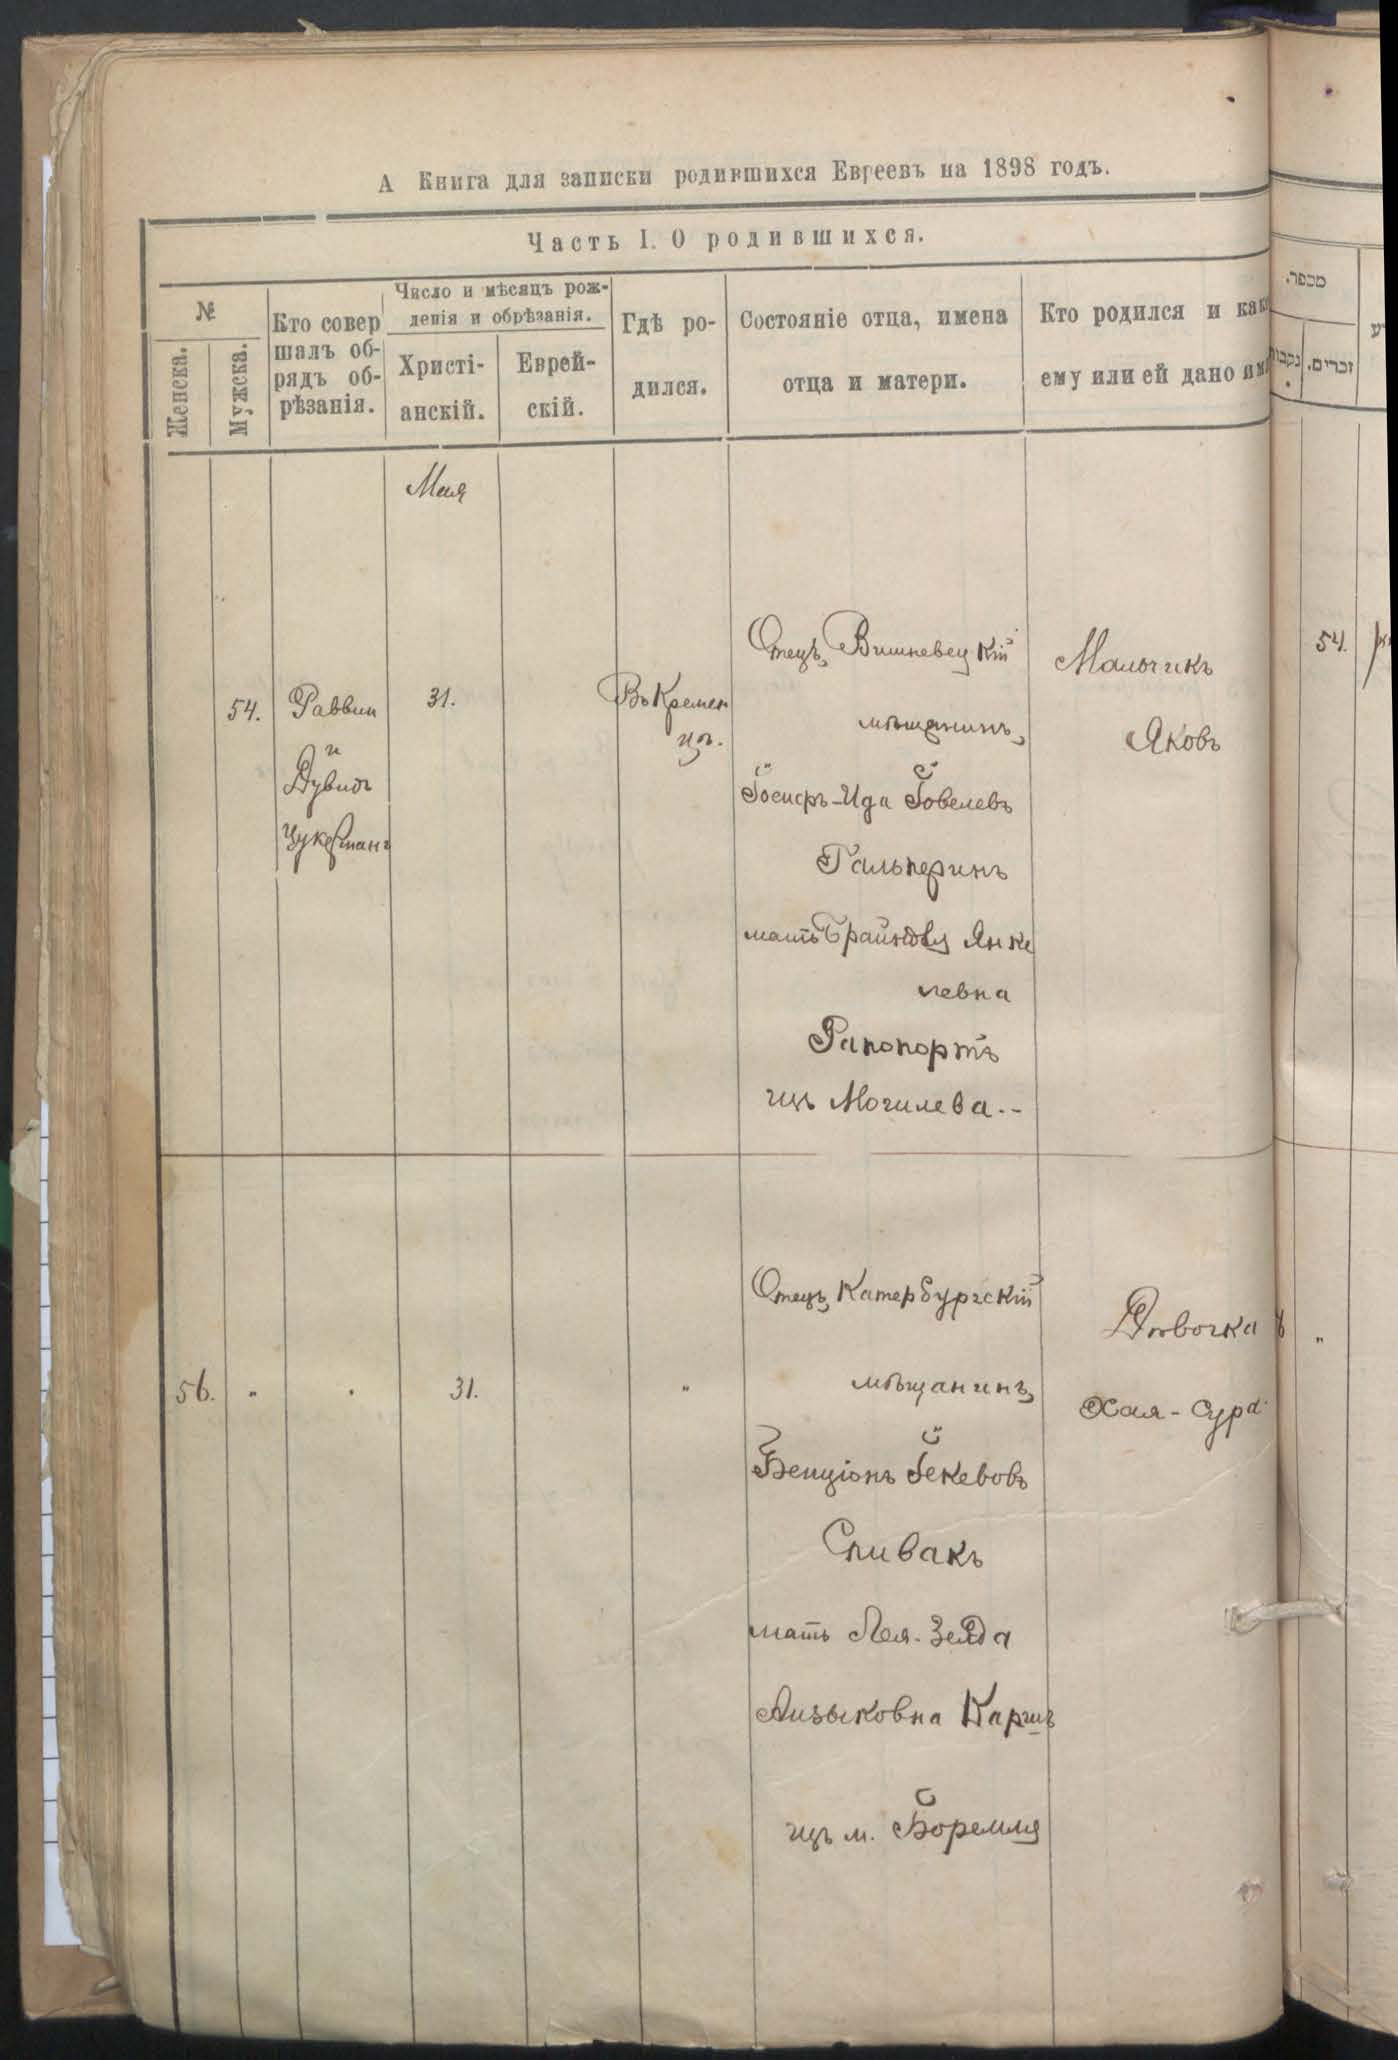 А Книга для записки родившихся Евреевъ на 1898 годъ.
Часть I. О родившихся.
№
Женска.
Мужска.
Кто совер
шалъ об-
рядъ об-
рѣзанія.
Число и мѣсяцъ рож-
денія и обрѣзанія.
Христі-
анскій.
Еврей-
скій.
Гдѣ ро-
дился.
Состояніе отца, имена
отца и матери.
Кто родился и как
ему или ей дано им
מספר.
נקבות
זכרים.
Мая
54.
Раввин
и
Дувидъ
Цукерманъ
31.
Въ Кремен
цѣ.
Отецъ Вишневецкій
мѣщанинъ
Іосифъ-Ида Говелевъ
Гальперинъ
мать Янке
левна
Рапопортъ
изъ Могилева.-
Мальчикъ
Яковъ
54.
56.
"
"
31.
"
Отецъ Катербургскій
мѣщанинъ
Бенціонъ
Спивакъ
мать Лея-Зелда
Айзыковна
изъ м. Боремля
Дѣвочка
Хая-Сура
"